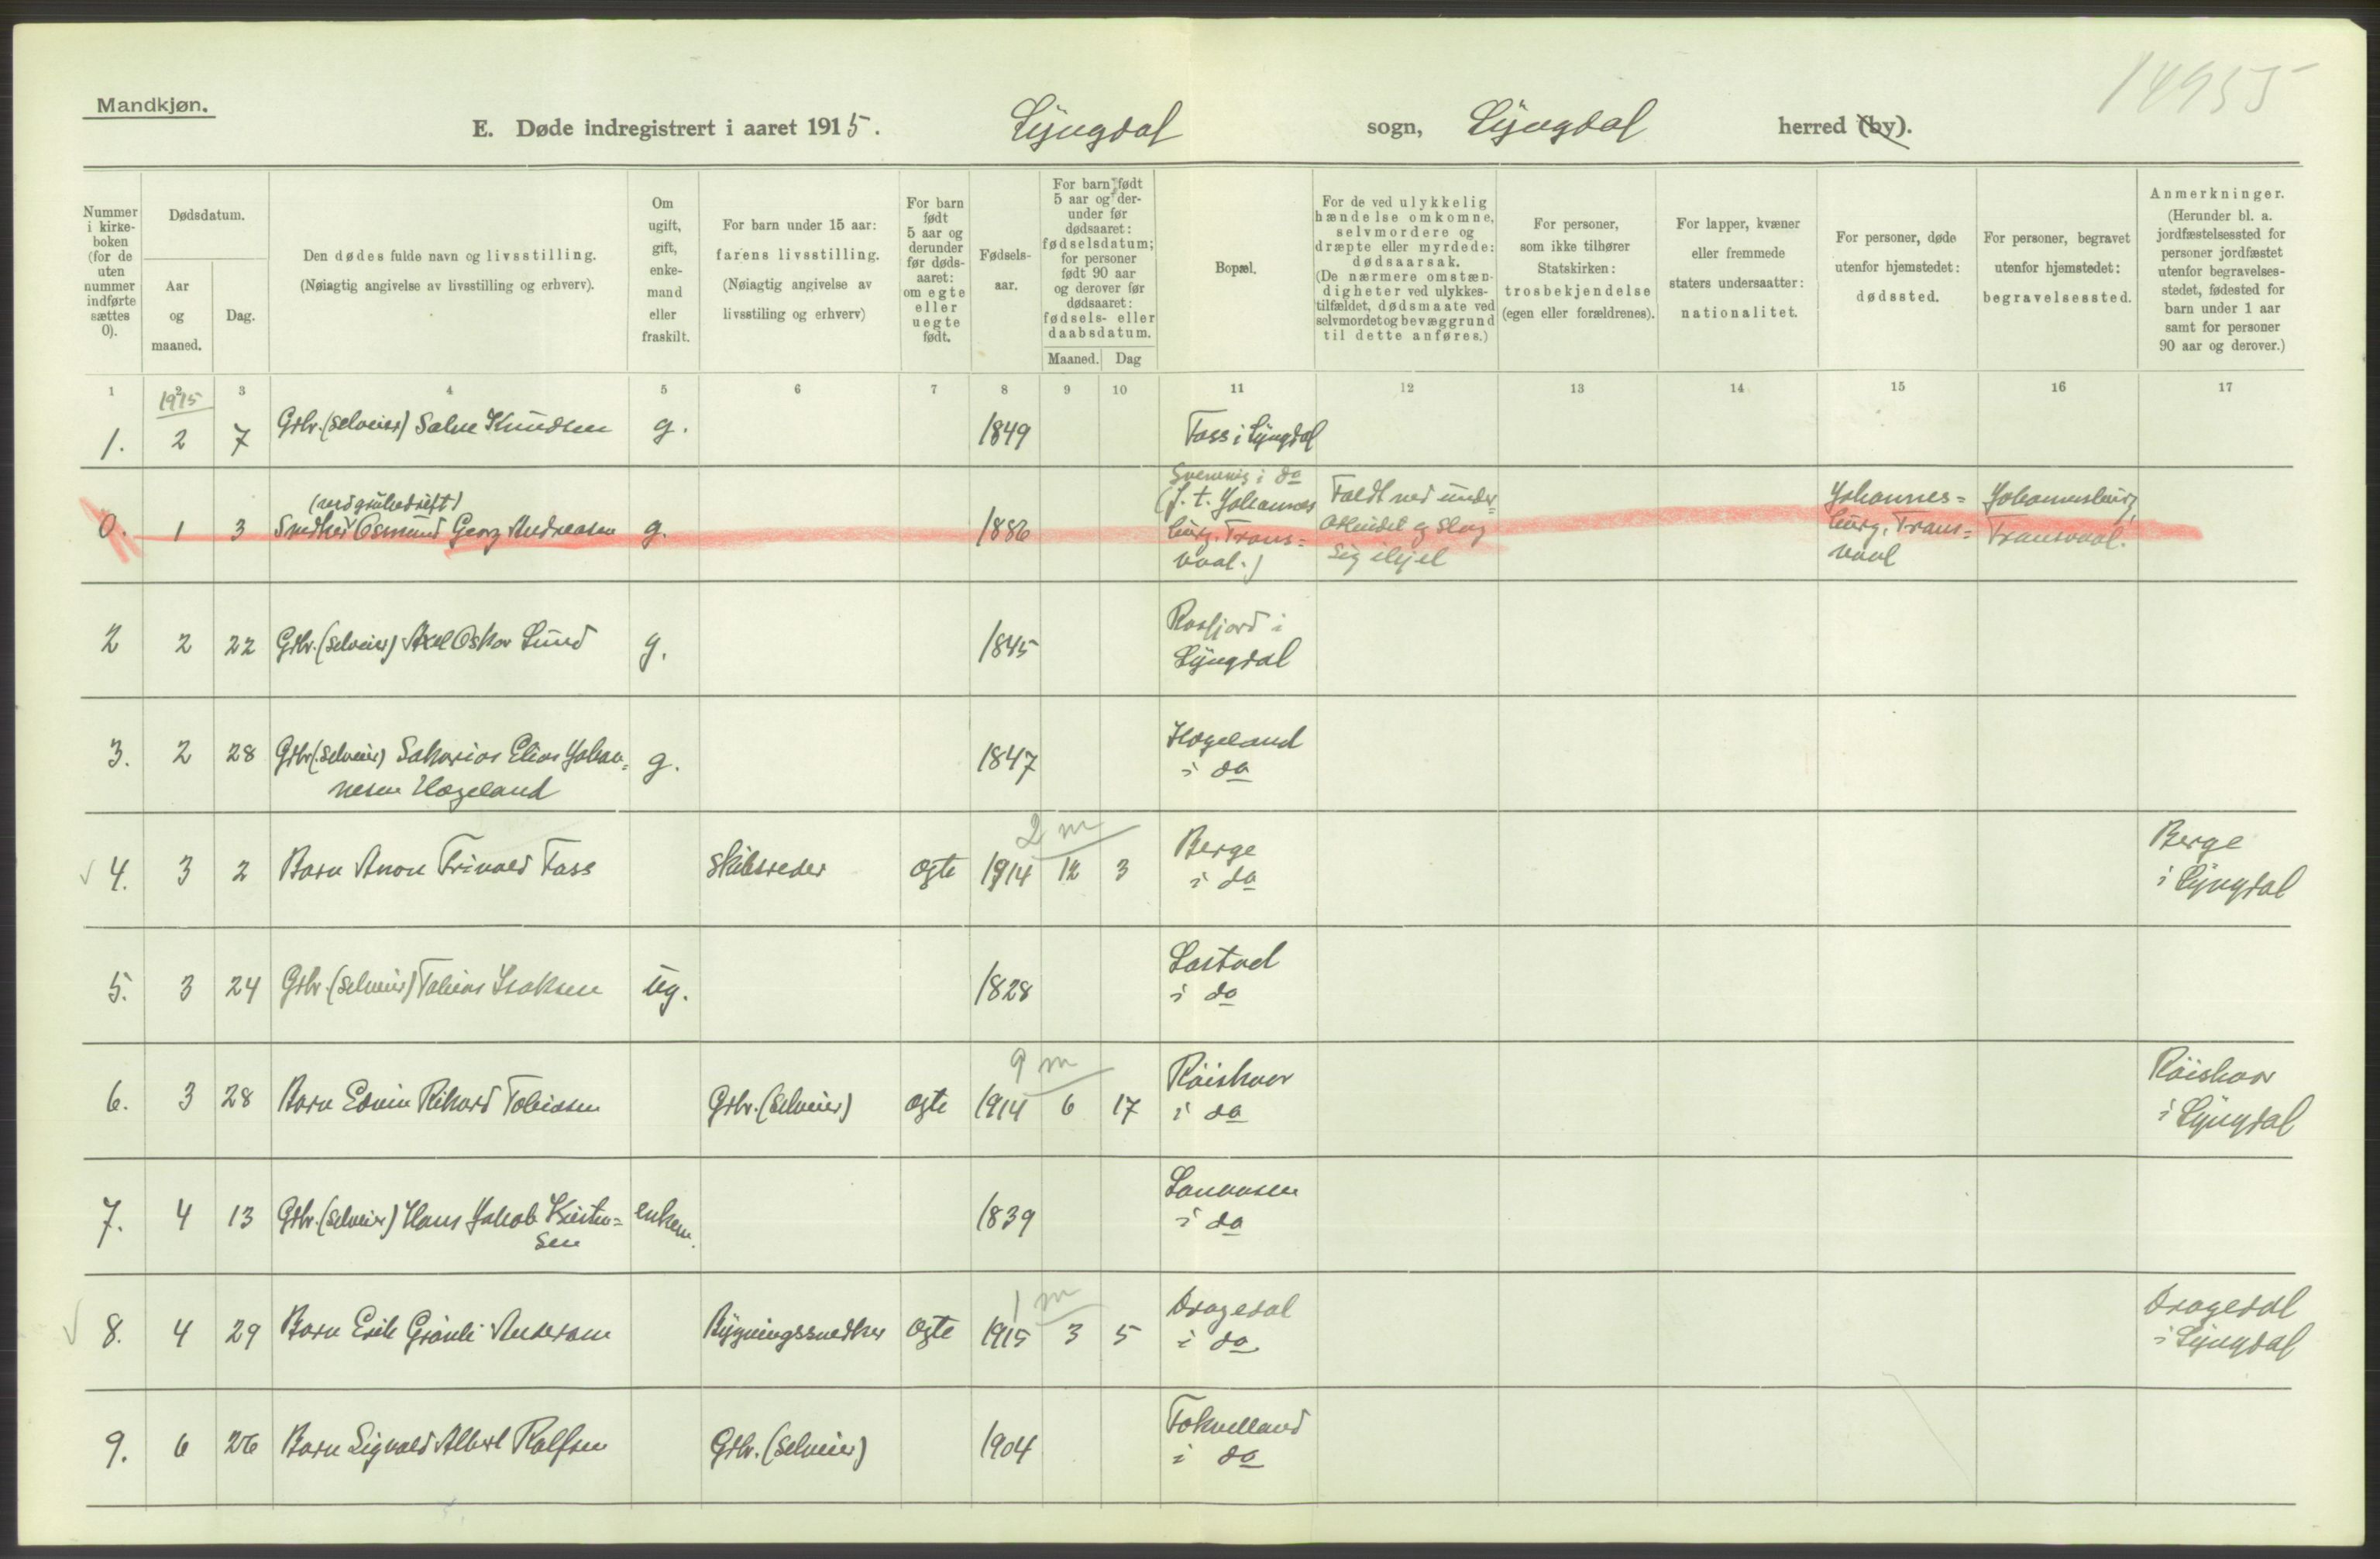 14955
Mandkjøn.
E. Døde indregistrert i aaret 1915. Lyngdal sogn, Lyngdal herred (by).
Nummer i kirkeboken (for de uten nummer indførte sættes 0).
Dødsdatum.
Aar og maaned.
Dag.
Den dødes fulde navn og livsstilling.
(Nøiagtig angivelse av livsstilling og erhverv).
Om ugift, gift, enkemand eller fraskilt.
For barn under 15 aar: farens livsstilling.
(Nøiagtig angivelse av livsstiling og erhverv)
For barn født 5 aar og derunder før dødsaaret: om egte eller uegte født.
Fødselsaar.
For barn født 5 aar og derunder før dødsaaret: fødselsdatum; for personer født 90 aar og derover før dødsaaret: fødsels- eller daabsdatum.
Maaned. Dag
Bopæl.
For de ved ulykkelig hændelse omkomne, selvmordere og dræpte eller myrdede: dødsaarsak.
(De nærmere omstændigheter ved ulykkestilfældet, dødsmaate ved selvmordet og bevæggrund til dette anføres.)
For personer, som ikke tilhører Statskirken: trosbekjendelse (egen eller forældrenes).
For lapper, kvæner eller fremmede staters undersaatter: nationalitet.
For personer, døde utenfor hjemstedet: dødssted.
For personer, begravet utenfor hjemstedet: begravelsessted.
Anmerkninger.
(Herunder bl. a. jordfæstelsessted for personer jordfæstet utenfor begravelsesstedet, fødested for barn under 1 aar samt for personer 90 aar og derover.)
1 2 3 4 5 6 7 8 9 10 11 12 13 14 15 16 17
1915
1. 2 7 Grbr. (selveier) Salve Knudsen g. 1849 Foss i Lyngdal
0. 1 3 (ved grubedrift)
Snedker Osmund Georg Andreasen g. 1886 i do
(f. t. Johannes
burg, Trans=
vaal.)
Faldt ned under
arbeidet og slog
sig ihjel
Johannes=
burg, Trans=
vaal
Johannesburg,
Transvaal.
2 2 22 Grbr. (selveier) Axel Oskar Lund g. 1845 Rosfjord i
Lyngdal
3. 2 28 Grbr. (selveier) Sakarias Elias Johan=
nesen Hægeland g. 1847 Hægeland
i do
2 m
4. 3 2 Barn Anon Trivald Foss Skibsreder egte 1914 12 3 Berge
i do
Berge
i Lyngdal
5. 3 24 Grbr. (selveier) Tobias Isaksen ug. 1828 Lastad
i do
9 m
6. 3 28 Barn Edvin Rikard Tobiasen Grbr. (selveier) egte 1914 6 17 Röiskaar
i do
Röiskaar
i Lyngdal
7. 4 13 Grbr. (selveier) Hans Jakob Kristen=
sen enkem. 1839
i do
1 m
8. 4 29 Barn Erik Grönli Andersen Bygningssnedker egte 1915 3 5 Dragedal
i do.
Dragedal
i Lyngdal
9. 6 26 Barn Sigvald Albert Rolfsen Grbr. (selveier) 1904
i do